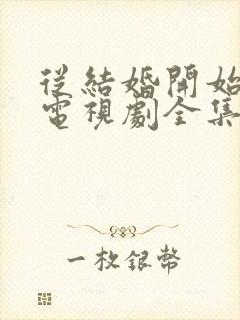 從結婚開始
電視劇全集
一枚銀幣